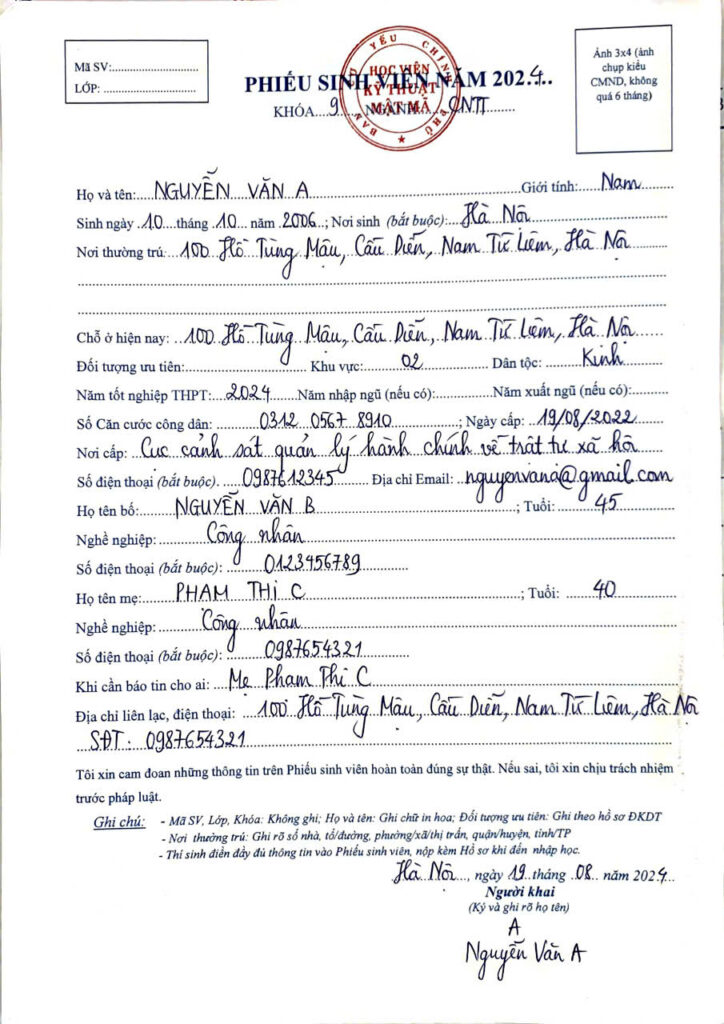 Mã SV:
LỚP:
BAN CƠ YẾU CHÍNH PHỦ
HỌC VIỆN
KỸ THUẬT
MẬT MÃ
Ảnh 3x4 (ảnh
chụp kiểu
CMND, không
quá 6 tháng)
PHIẾU SINH VIÊN NĂM 2024
KHÓA 9 NGÀNH CNTT
Họ và tên: NGUYỄN VĂN A Giới tính: Nam
Sinh ngày 10 tháng 10 năm 2006; Nơi sinh (bắt buộc): Hà Nội
Nơi thường trú: 100 Hồ Tùng Mậu, Cầu Diễn, Nam Từ Liêm, Hà Nội
Chỗ ở hiện nay: 100 Hồ Tùng Mậu, Cầu Diễn, Nam Từ Liêm, Hà Nội
Đối tượng ưu tiên: Khu vực: 02 Dân tộc: Kinh
Năm tốt nghiệp THPT: 2024 Năm nhập ngũ (nếu có): Năm xuất ngũ (nếu có):
Số Căn cước công dân: 0312 0567 8910; Ngày cấp: 19/08/2022
Nơi cấp: Cục cảnh sát quản lý hành chính về trật tự xã hội
Số điện thoại (bắt buộc). 0987612345 Địa chỉ Email: nguyenvana@gmail.com
Họ tên bố: NGUYỄN VĂN B; Tuổi: 45
Nghề nghiệp: Công nhân
Số điện thoại (bắt buộc): 0123456789
Họ tên mẹ: PHẠM THỊ C; Tuổi: 40
Nghề nghiệp: Công nhân
Số điện thoại (bắt buộc): 0987654321
Khi cần báo tin cho ai: Mẹ Phạm Thị C
Địa chỉ liên lạc, điện thoại: 100 Hồ Tùng Mậu, Cầu Diễn, Nam Từ Liêm, Hà Nội
SĐT: 0987654321
Tôi xin cam đoan những thông tin trên Phiếu sinh viên hoàn toàn đúng sự thật. Nếu sai, tôi xin chịu trách nhiệm
trước pháp luật.
Ghi chú: - Mã SV, Lớp, Khóa: Không ghi; Họ và tên: Ghi chữ in hoa; Đối tượng ưu tiên: Ghi theo hồ sơ ĐKDT
- Nơi thường trú: Ghi rõ số nhà, tổ/đường, phường/xã/thị trấn, quận/huyện, tỉnh/TP
- Thí sinh điền đầy đủ thông tin vào Phiếu sinh viên, nộp kèm Hồ sơ khi đến nhập học.
Hà Nội, ngày 19 tháng 08 năm 2024
Người khai
(Ký và ghi rõ họ tên)
A
Nguyễn Văn A